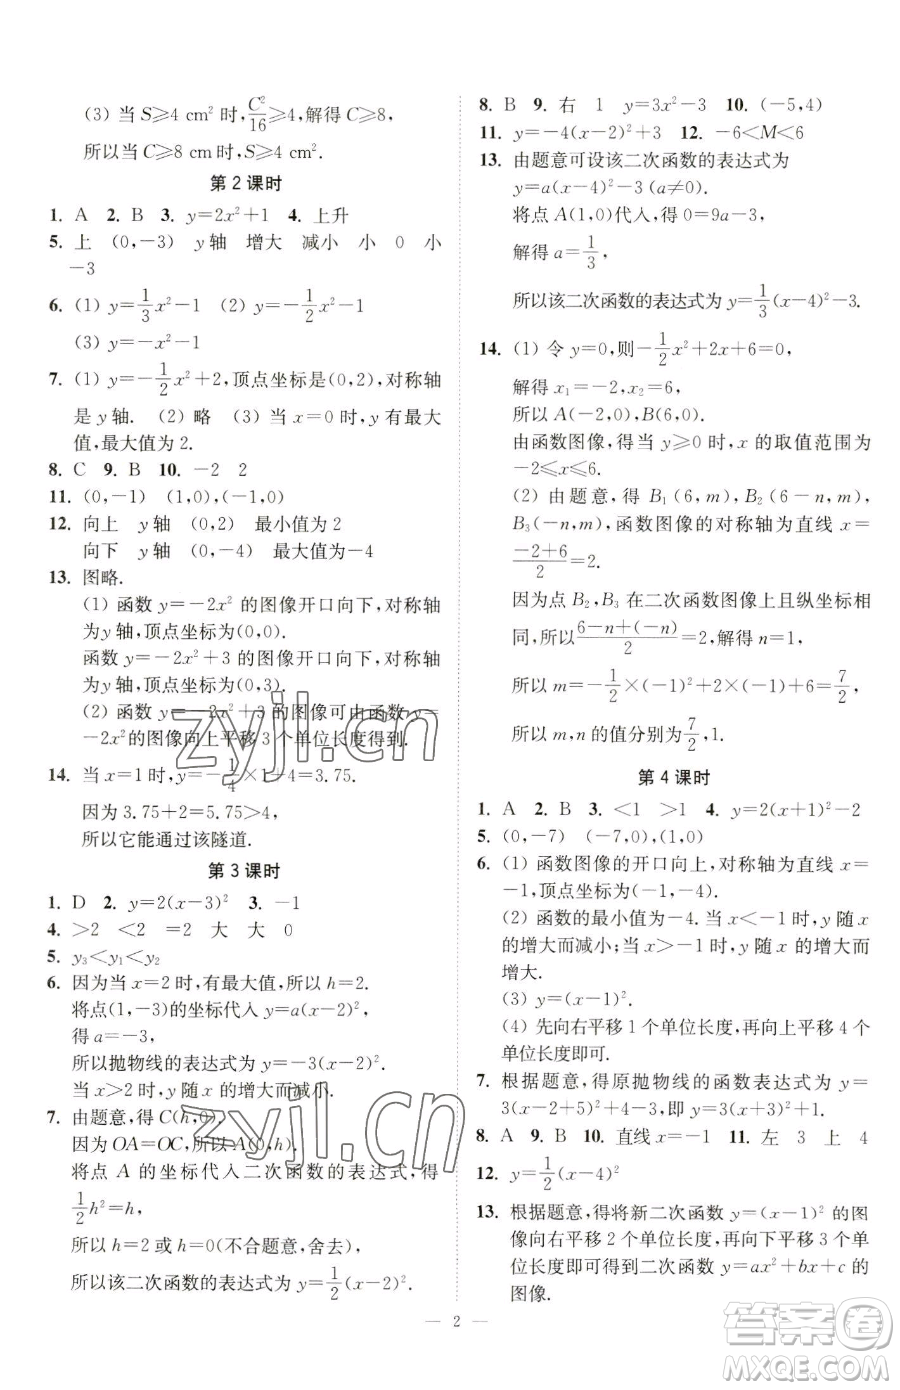 (3) 当 S≥4 cm² 时,C²/16≥4,解得 C≥8,
所以当 C≥8 cm时,S≥4 cm².
第 2 课时
1. A 2. B 3. y=2x²+1 4. 上升
5. 上 (0,-3) y 轴 增大 减小 小 0 小
-3
6. (1) y=1/3x²-1 (2) y=-1/2x²-1
(3) y=-x²-1
7. (1) y=-1/2x²+2,顶点坐标是(0,2),对称轴
是 y 轴. (2) 略 (3) 当 x=0 时,y 有最大
值,最大值为 2.
8. C 9. B 10. -2 2
11. (0,-1) (1,0),(-1,0)
12. 向上 y 轴 (0,2) 最小值为 2
向下 y 轴 (0,-4) 最大值为-4
13. 图略.
(1) 函数 y=-2x² 的图像开口向下,对称轴
为 y 轴,顶点坐标为(0,0).
函数 y=-2x²+3 的图像开口向下,对称轴
为 y 轴,顶点坐标为(0,3).
(2) 函数 y=-2x²+3 的图像可由函数 y=
-2x²的图像向上平移 3 个单位长度得到.
14. 当 x=1 时,y=-1/4×1+4=3.75.
因为 3.75+2=5.75>4,
所以它能通过该隧道.
第 3 课时
1. D 2. y=2(x-3)² 3. -1
4. >2 <2 =2 大 大 0
5. y₃<y₁<y₂
6. 因为当 x=2 时,有最大值,所以 h=2.
将点(1,-3)的坐标代入 y=a(x-2)²,
得 a=-3,
所以抛物线的表达式为 y=-3(x-2)².
当 x>2 时,y 随 x 的增大而减小.
7. 由题意,得 C(h,0).
因为 OA=OC,所以 A(0,h).
将点 A 的坐标代入二次函数的表达式,得
1/2h²=h,
所以 h=2 或 h=0(不合题意,舍去),
所以该二次函数的表达式为 y=1/2(x-2)².
8. B 9. 右 1 y=3x²-3 10. (-5,4)
11. y=-4(x-2)²+3 12. -6<M<6
13. 由题意可设该二次函数的表达式为
y=a(x-4)²-3(a≠0).
将点 A(1,0)代入,得 0=9a-3,
解得 a=1/3,
所以该二次函数的表达式为 y=1/3(x-4)²-3.
14. (1) 令 y=0,则-1/2x²+2x+6=0,
解得 x₁=-2,x₂=6,
所以 A(-2,0),B(6,0).
由函数图像,得当 y≥0 时,x 的取值范围为
-2≤x≤6.
(2) 由题意,得 B₁(6,m),B₂(6-n,m),
B₃(-n,m),函数图像的对称轴为直线 x=
-2+6/2=2.
因为点 B₂,B₃ 在二次函数图像上且纵坐标相
同,所以6-n+(-n)/2=2,解得 n=1,
所以 m=-1/2×(-1)²+2×(-1)+6=7/2,
所以 m,n 的值分别为7/2,1.
第 4 课时
1. A 2. B 3. <1 >1 4. y=2(x+1)²-2
5. (0,-7) (-7,0),(1,0)
6. (1) 函数图像的开口向上,对称轴为直线 x=
-1,顶点坐标为(-1,-4).
(2) 函数的最小值为-4. 当 x<-1 时,y 随 x
的增大而减小;当 x>-1 时,y 随 x 的增大而
增大.
(3) y=(x-1)².
(4) 先向右平移 1 个单位长度,再向上平移 4 个
单位长度即可.
7. 根据题意,得原抛物线的函数表达式为 y=
3(x-2+5)²+4-3,即 y=3(x+3)²+1.
8. A 9. B 10. 直线 x=-1 11. 左 3 上 4
12. y=1/2(x-4)²
13. 根据题意,得将新二次函数 y=(x-1)² 的图
像向右平移 2 个单位长度,再向下平移 3 个单位长
度即可得到二次函数 y=ax²+bx+c 的
图像.
— 2 —
zyjl.cn
zyjl.cn
答案圈
MXQE.COM